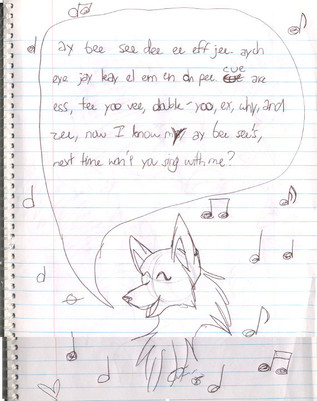 ay bee see dee ee eff jee aych
eye jay kay el em en oh pee cue are
ess, tee yoo vee, double-yoo, ex, why, and
zee, now I know my ay bee see's,
next time won't you sing with me?